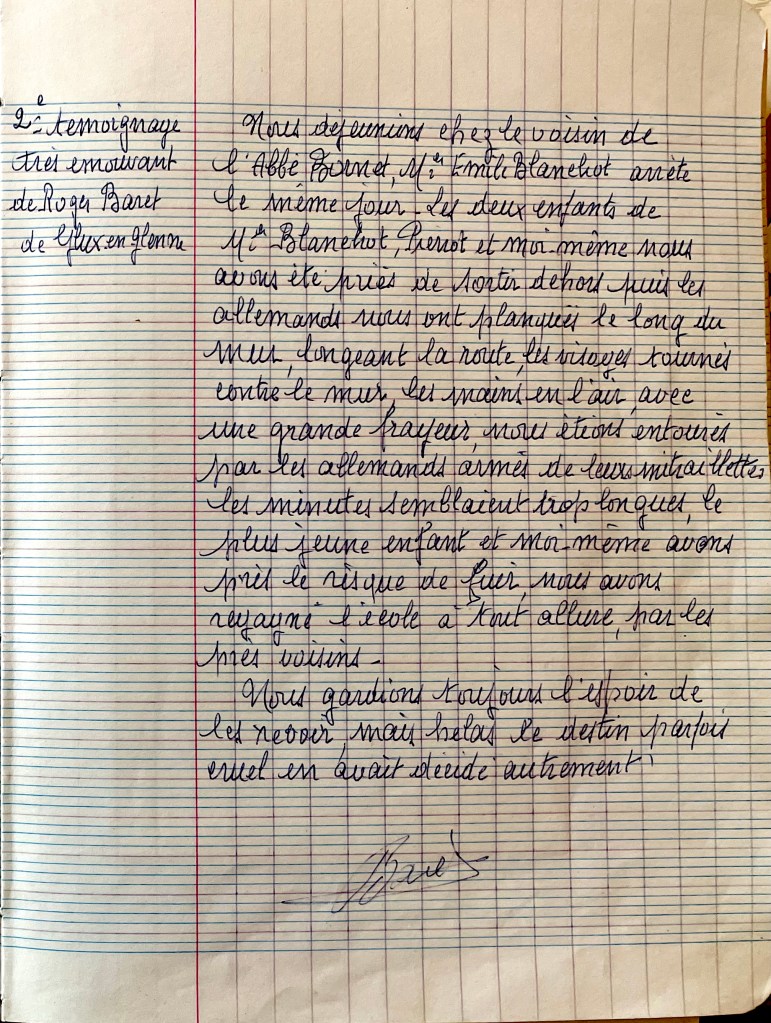 2e temoignage
très emouvant
de Roger Baret
de Glux en Glenne
Nous déjeunions chez le voisin de
l'Abbé Bornet, Mr Emile Blanchot arrète
le même jour. Les deux enfants de
Mr Blanchot, Pierrot et moi-même nous
avons été priés de sortir dehors puis les
allemands nous ont planqués le long du
mur, longeant la route, les visages tournés
contre le mur, les mains en l'air, avec
une grande frayeur, nous étions entourés
par les allemands armés de leurs mitraillettes
les minutes semblaient trop longues, le
plus jeune enfant et moi-même avons
près le risque de fuir, nous avons
regagné l'école à tout allure, par les
près voisins.
Nous gardions toujours l'espoir de
les revoir, mais hélas le destin parfois
cruel en avait décidé autrement
Baret